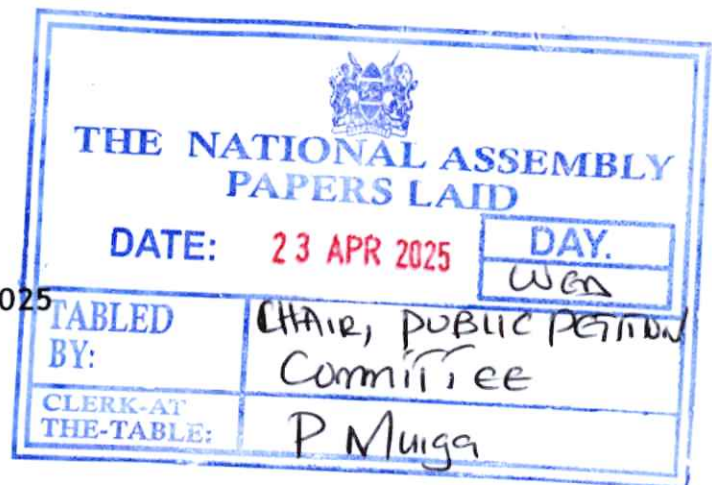 THE NATIONAL ASSEMBLY
PAPERS LAID
DATE: 23 APR 2025 DAY.
WED
025
TABLED BY: CHAIR, PUBLIC PETITION
Committee
CLERK-AT
THE-TABLE: P Muiga